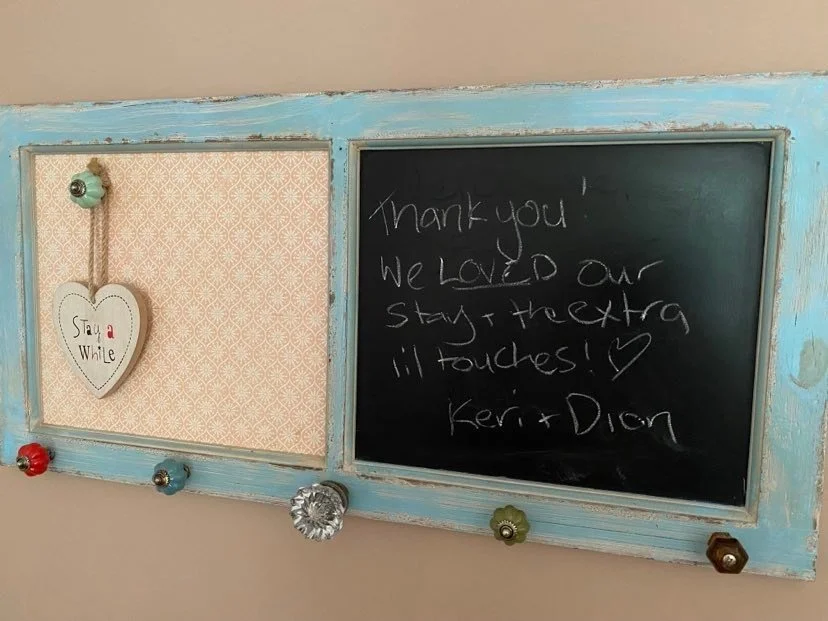 Stay a
While
Thank you!
We LOVED our
stay + the extra
lil touches! ♡
Keri + Dion